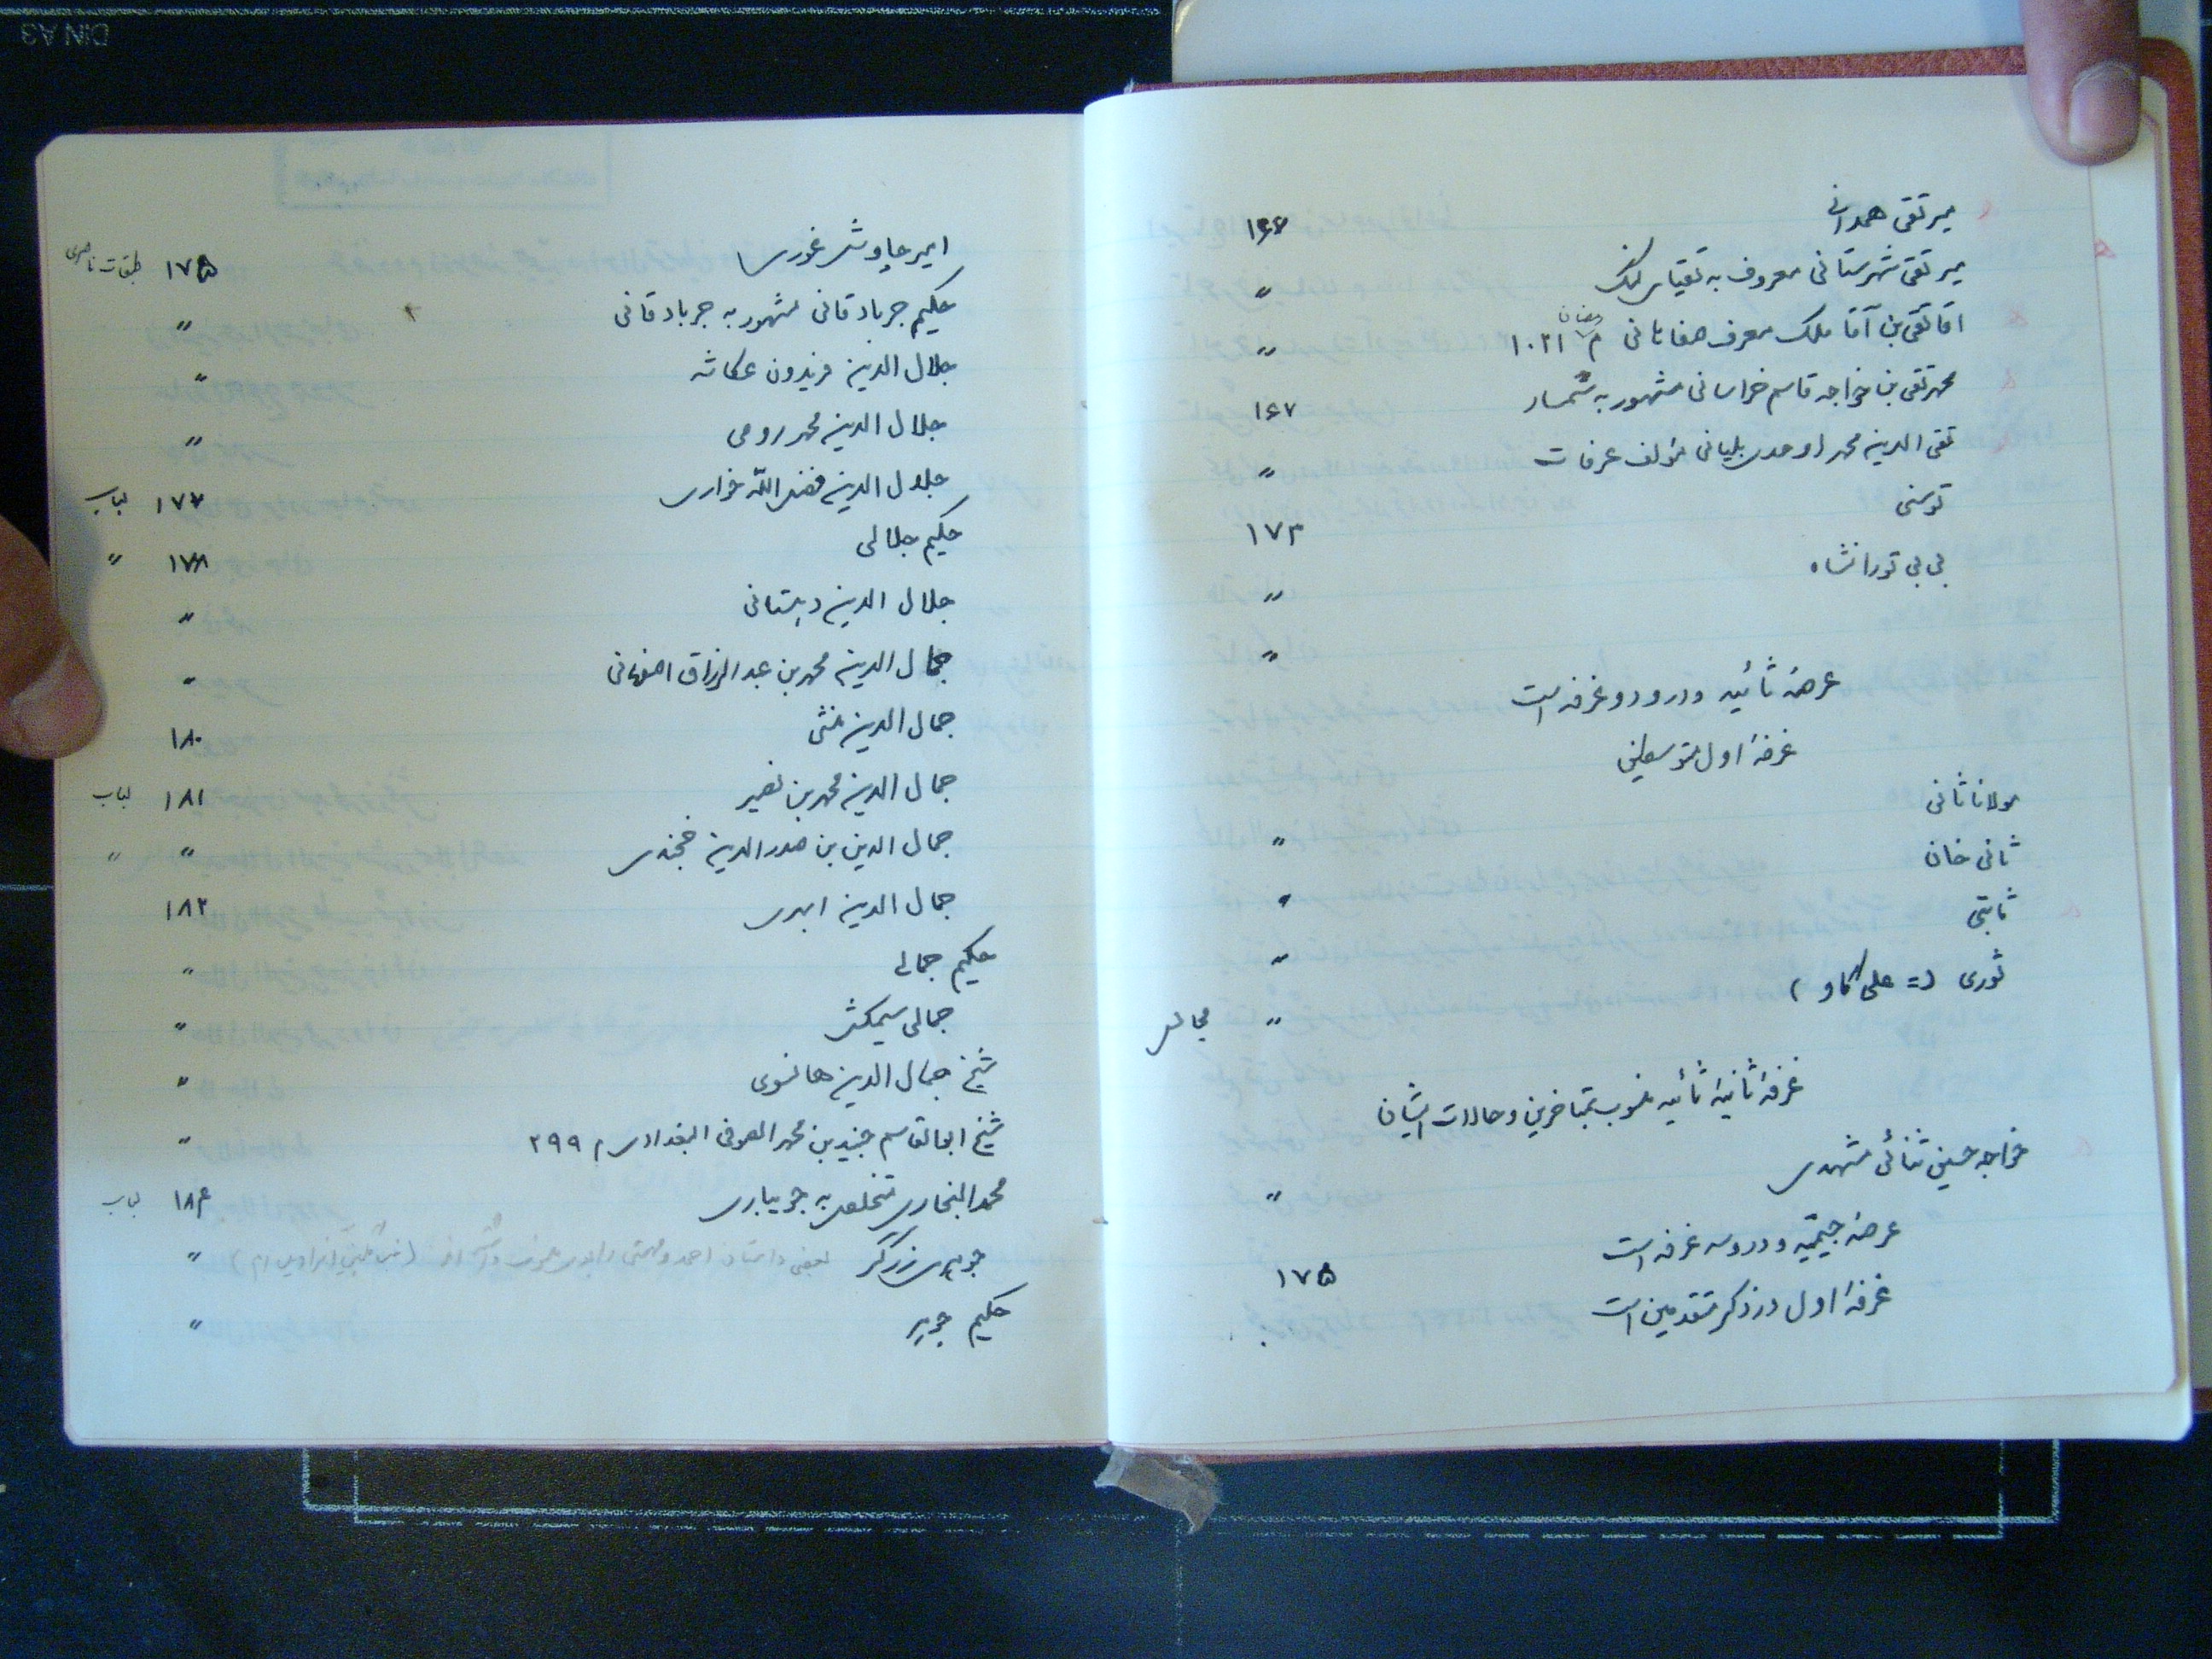 میر تقی همدانی ۱۶۶
میر تقی شهرستانی معروف به تقیای لنگ "
آقا تقی بن آقا ملک معرف صفاهانی م رمضان ۱۰۲۱ "
محمد تقی بن خواجه قاسم خراسانی مشهور به شمسار ۱۶۷
تقی الدین محمد اوحدی بلیانی مؤلف عرفات "
توسنی ۱۷۳
بی بی تورانشاه "
عرصهٔ ثائیه و در و دو غرفه است "
غرفهٔ اول متوسطین
مولانا ثانی "
ثانی خان "
ثابتی "
ثوری (= علی گاو) " مجالس
غرفهٔ ثانیهٔ ثائیه منسوب بمتأخرین و حالات ایشان
خواجه حسین ثنائی مشهدی "
عرصهٔ جیمیّه و در و سه غرفه است
غرفهٔ اول در ذکر متقدمین است ۱۷۵
امیر چاوش غوری ۱۷۵ طبقات ناصری
حکیم جربادقانی مشهور به جربادقانی "
جلال الدین فریدون عکاشه "
جلال الدین محمد رومی "
جلال الدین فضل الله خواری ۱۷۷ لباب
حکیم جلالی ۱۷۸ "
جلال الدین دهستانی "
جمال الدین محمد بن عبد الرزاق اصفهانی "
جمال الدین منشی ۱۸۰
جمال الدین محمد بن نصیر ۱۸۱ لباب
جمال الدین بن صدر الدین خجندی " "
جمال الدین ابهری ۱۸۲
حکیم جمالی "
جمالی سیمکش "
شیخ جمال الدین هانسوی "
شیخ ابوالقاسم جنید بن محمد الصوفی البغدادی م ۲۹۹ "
محمد البخاری متخلص به جویباری ۱۸۴ لباب
جوهری زرگر بعضی داستان احمد و مهستی را بوی منسوب "
حکیم جوهر "